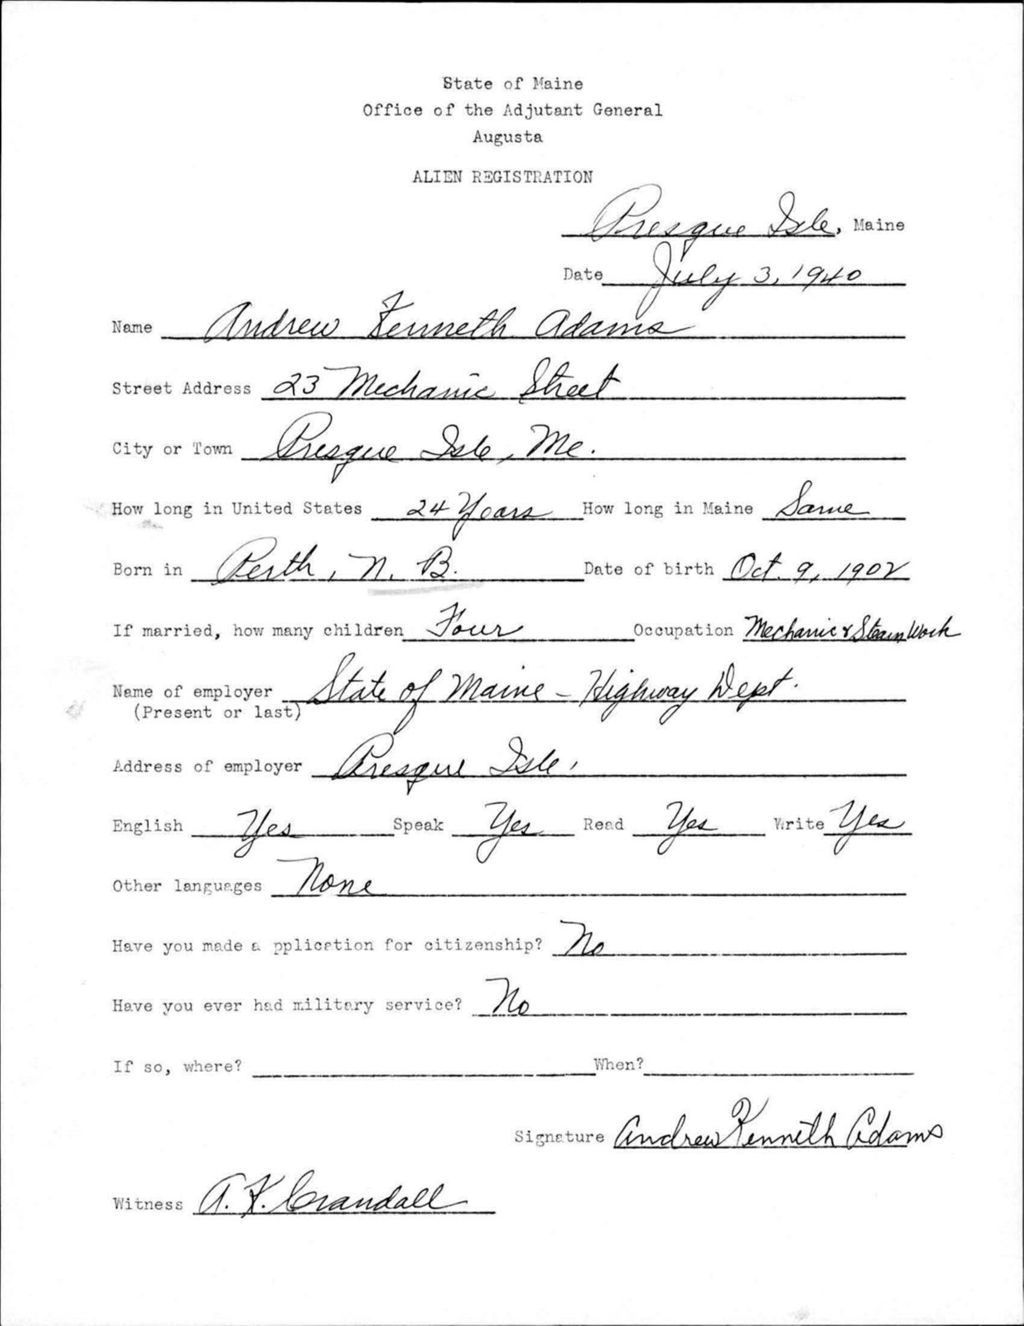 State of Maine
Office of the Adjutant General
Augusta
ALIEN REGISTRATION
Presque Isle, Maine
Date July 3, 1940
Name Andrew Kenneth Adams
Street Address 23 Mechanic Street
City or Town Presque Isle, Me.
How long in United States 24 Years How long in Maine Same
Born in Perth, N. B. Date of birth Oct. 9, 1902
If married, how many children Four Occupation Mechanic & Steam Work
Name of employer State of Maine - Highway Dept.
(Present or last)
Address of employer Presque Isle,
English Yes Speak Yes Read Yes Write Yes
Other languages None
Have you made a pplication for citizenship? No
Have you ever had military service? No
If so, where? When?
Signature Andrew Kenneth Adams
Witness A. K. Crandall